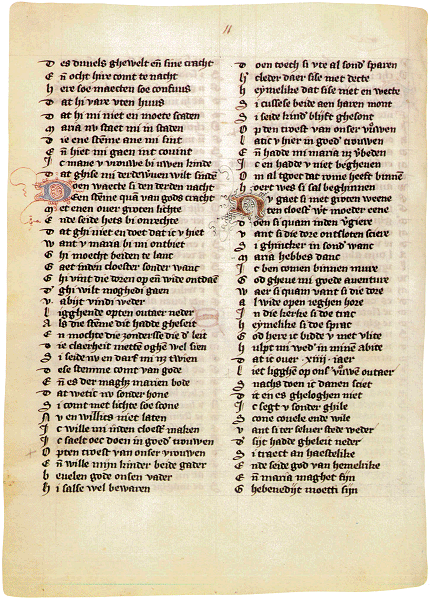 11
D es duuels ghewelt en̄ sine cracht
E n̄ ocht hire comt te nacht
H ere soe maecten soe confuus
D at hi vare vten huus
D at hi mi niet en moete scaden
M aria nv staet mi in staden
D ie ene stēme ane mi sint
E n̄ hiet mi gaen int couint
I c mane v vrouwe bi uwen kinde
D at ghise mi derdewuen wilt sinden
D oen waecte si den derden nacht
Een stēme quā van gods cracht
M et enen ouer groten lichte
E nde seide hets bi onrechte
D at ghi niet en doet dat ic v hiet
W ant v maria bi mi ontbiet
G hi moecht beiden te lanc
G aet inden cloester sonder wanc
G hi vint die doren op en̄ wide ontdaē
D ghi wilt moghedi gaen
v. abijt vindi weder
L igghende opten outaer neder
A ls die stēme dit hadde gheseit
E n mochte die zondersse die d' leit
D ie claerheit metten oghē wel sien
S i seide nv en darf mi nz twien
D ese stemme comt van gode
E n̄ es der maghz marien bode
D at wetic nv sonder hone
S i comt met lichte soe scone
N v en willics niet laten
I c wille mi inden cloest' maken
I c saelt oec doen in goed' trouwen
O pten troest van onser vrouwen
E n̄ wille mijn kinder beide gader
B euelen gode onsen vader
H i salse wel bewaren
D oen toech si vte al sond' sparen
H' cleder daer sise met decte
H eymelike dat sise niet en wecte
S i cussese beide aen haren mont
S i seide kind' blijft ghesont
O pten troest van onser vrouwen
L atic v hier in goed' trouwen
E n̄ hadde mi maria nz verbeden
I c en hadde v niet begheuen
O m al tgoet dat rome heeft binnen
H oert wes si sal beghinnen
N v gaet si met groten weene
ten cloest' wt moeder eene
D oen si quam inden v'giere
V ant si die dore ontsloten sciere
S i ghincker in sond' wanc
M aria hebbes danc
I c ben comen binnen mure
G od gheue mi goede auenture
W aer si quam vant si die dore
A l wide open ieghen hore
I n die kerke si doe trac
H eymelike si doe sprac
G od here ic bidde v met vlite
H ulpt mi wed' in minē abite
D at ic ouer .xiiij. iaer
L iet liggh̄ op ons' vrouwē outaer
S nachs doen ic danen sciet
D it en es gheloghen niet
I c segt v sonder ghile
S cone couele ende wile
V ant si ter seluer stede weder
D sijt hadde gheleit neder
S i traect an haestelike
E nde seide god van hemelrike
E n̄ maria maghet fijn
G hebenedijt moetti sijn